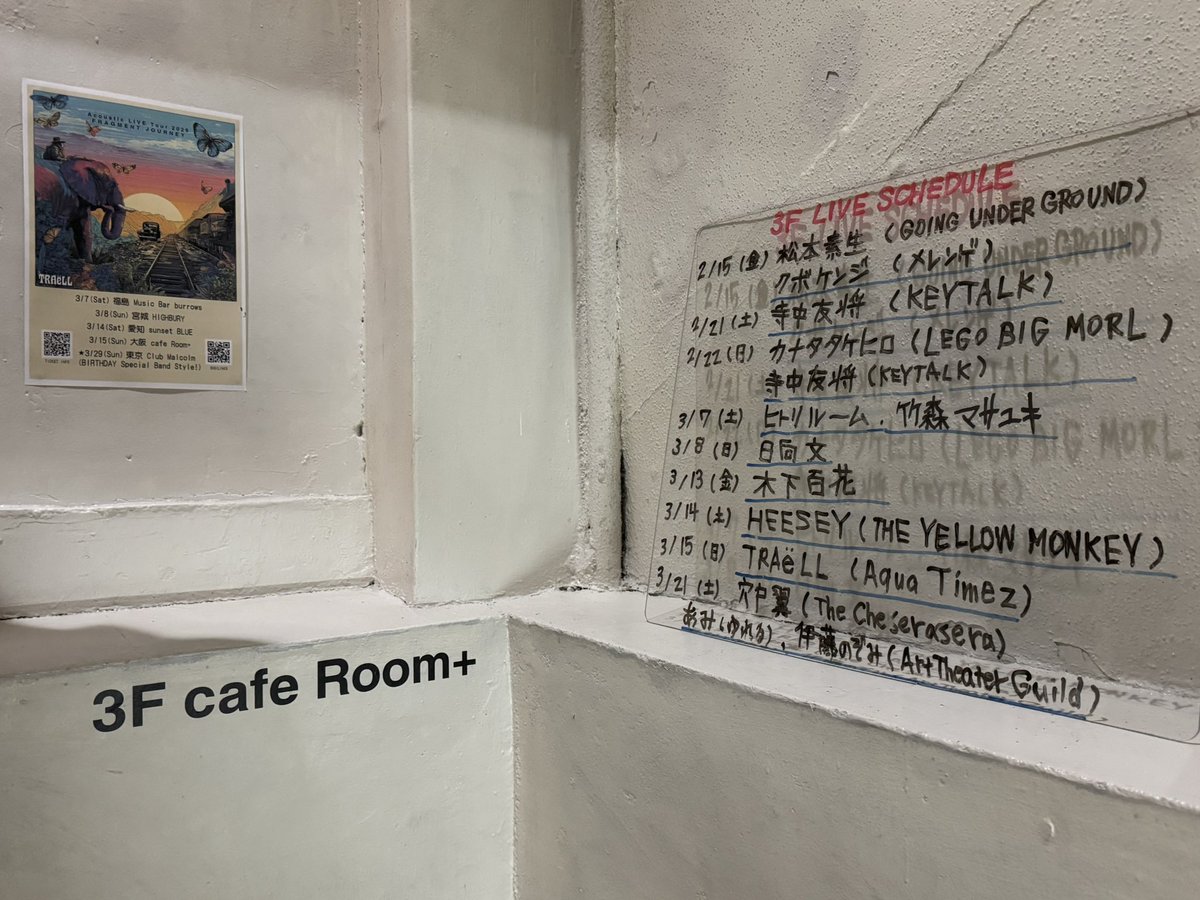 Acoustic LIVE Tour 2026
FRAGMENT JOURNEY
TRAëLL
3/7(Sat) 福島 Music Bar burrows
3/8(Sun) 宮城 HIGHBURY
3/14(Sat) 愛知 sunset BLUE
3/15(Sun) 大阪 cafe Room+
★3/29(Sun) 東京 Club Malcolm
(BIRTHDAY Special Band Style!)
TICKET INFO
3F cafe Room+
3F LIVE SCHEDULE
2/15 (金) 松本素生 (GOING UNDER GROUND)
クボケンジ (メレンゲ)
2/21 (土) 寺中友将 (KEYTALK)
2/22 (日) カナタタケヒロ (LEGO BIG MORL)
寺中友将 (KEYTALK)
3/7 (土) ヒトリルーム、竹森マサユキ
3/8 (日) 日向文
3/13 (金) 木下百花
3/14 (土) HEESEY (THE YELLOW MONKEY)
3/15 (日) TRAëLL (Aqua Timez)
3/21 (土) 宍戸翼 (The Cheserasera)
あみ(ゆれる)、伊藤のぞみ(Art Theater Guild)